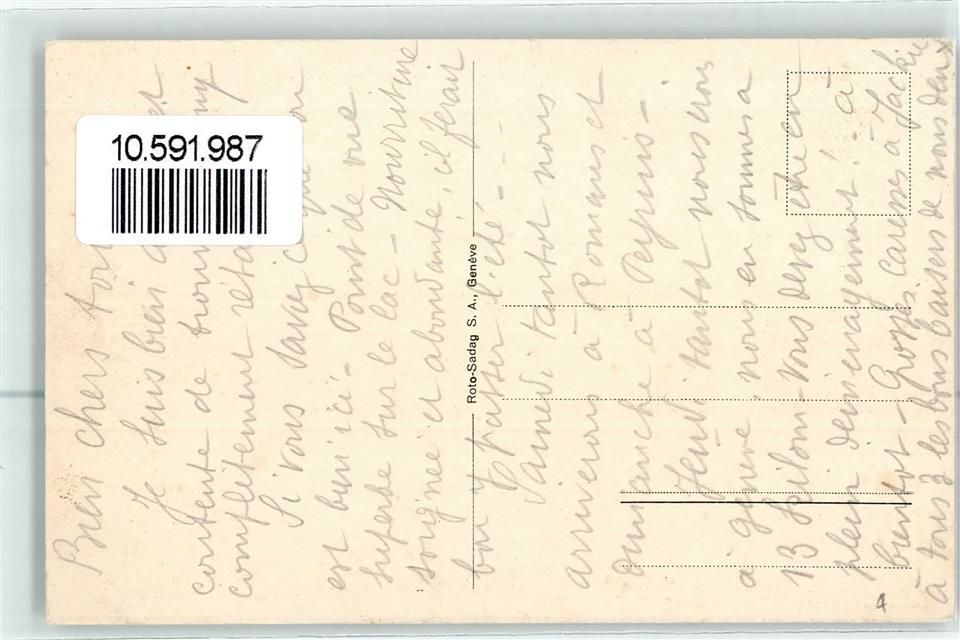 10.591.987
Roto-Sadag S. A., Genève
Bien chers
Je suis bien
contente de
complètement
Si vous saviez
est bien ici - Point de vue
superbe sur le lac - Nourriture
soignée et abondante, il ferait
bon y passer l'été -
Samedi tantôt nous
arriverons à Romans et
dimanche à Peyrins -
Jeudi tantôt nous serons
à Genève, nous en sommes à
13 kilom - Vous devez être en
plein déménagement. à
bientôt - Grosses caresses à Jackie
à tous 3 les bons baisers de nous deux
4